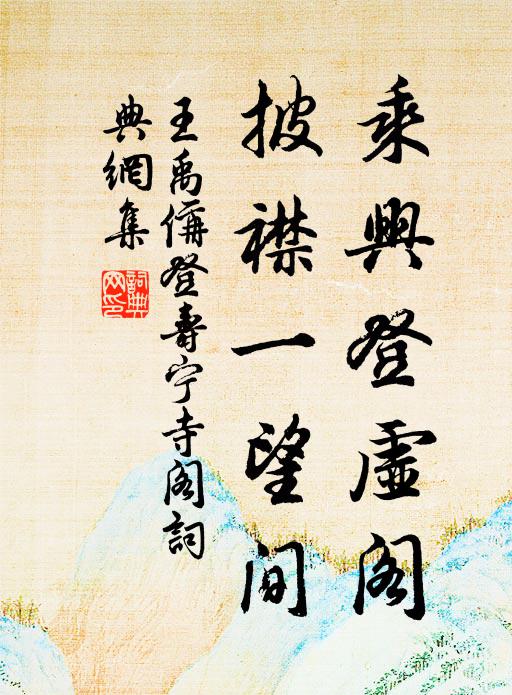 乘興登虛閣
披襟一望间
王禹偁登壽宁寺阁詞
典網集
詞典网印